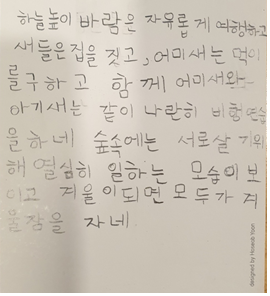 하늘높이 바람은 자유롭게 여행하고
새들은집을 짓고, 어미새는 먹이
를구하고 함께 어미새와
아기새는 같이 나란히 비행연습
을하네 숲속에는 서로살기위
해 열심히 일하는 모습이보
이고 겨울이되면 모두가겨
울잠을 자네
designed by Hoseob Yoon